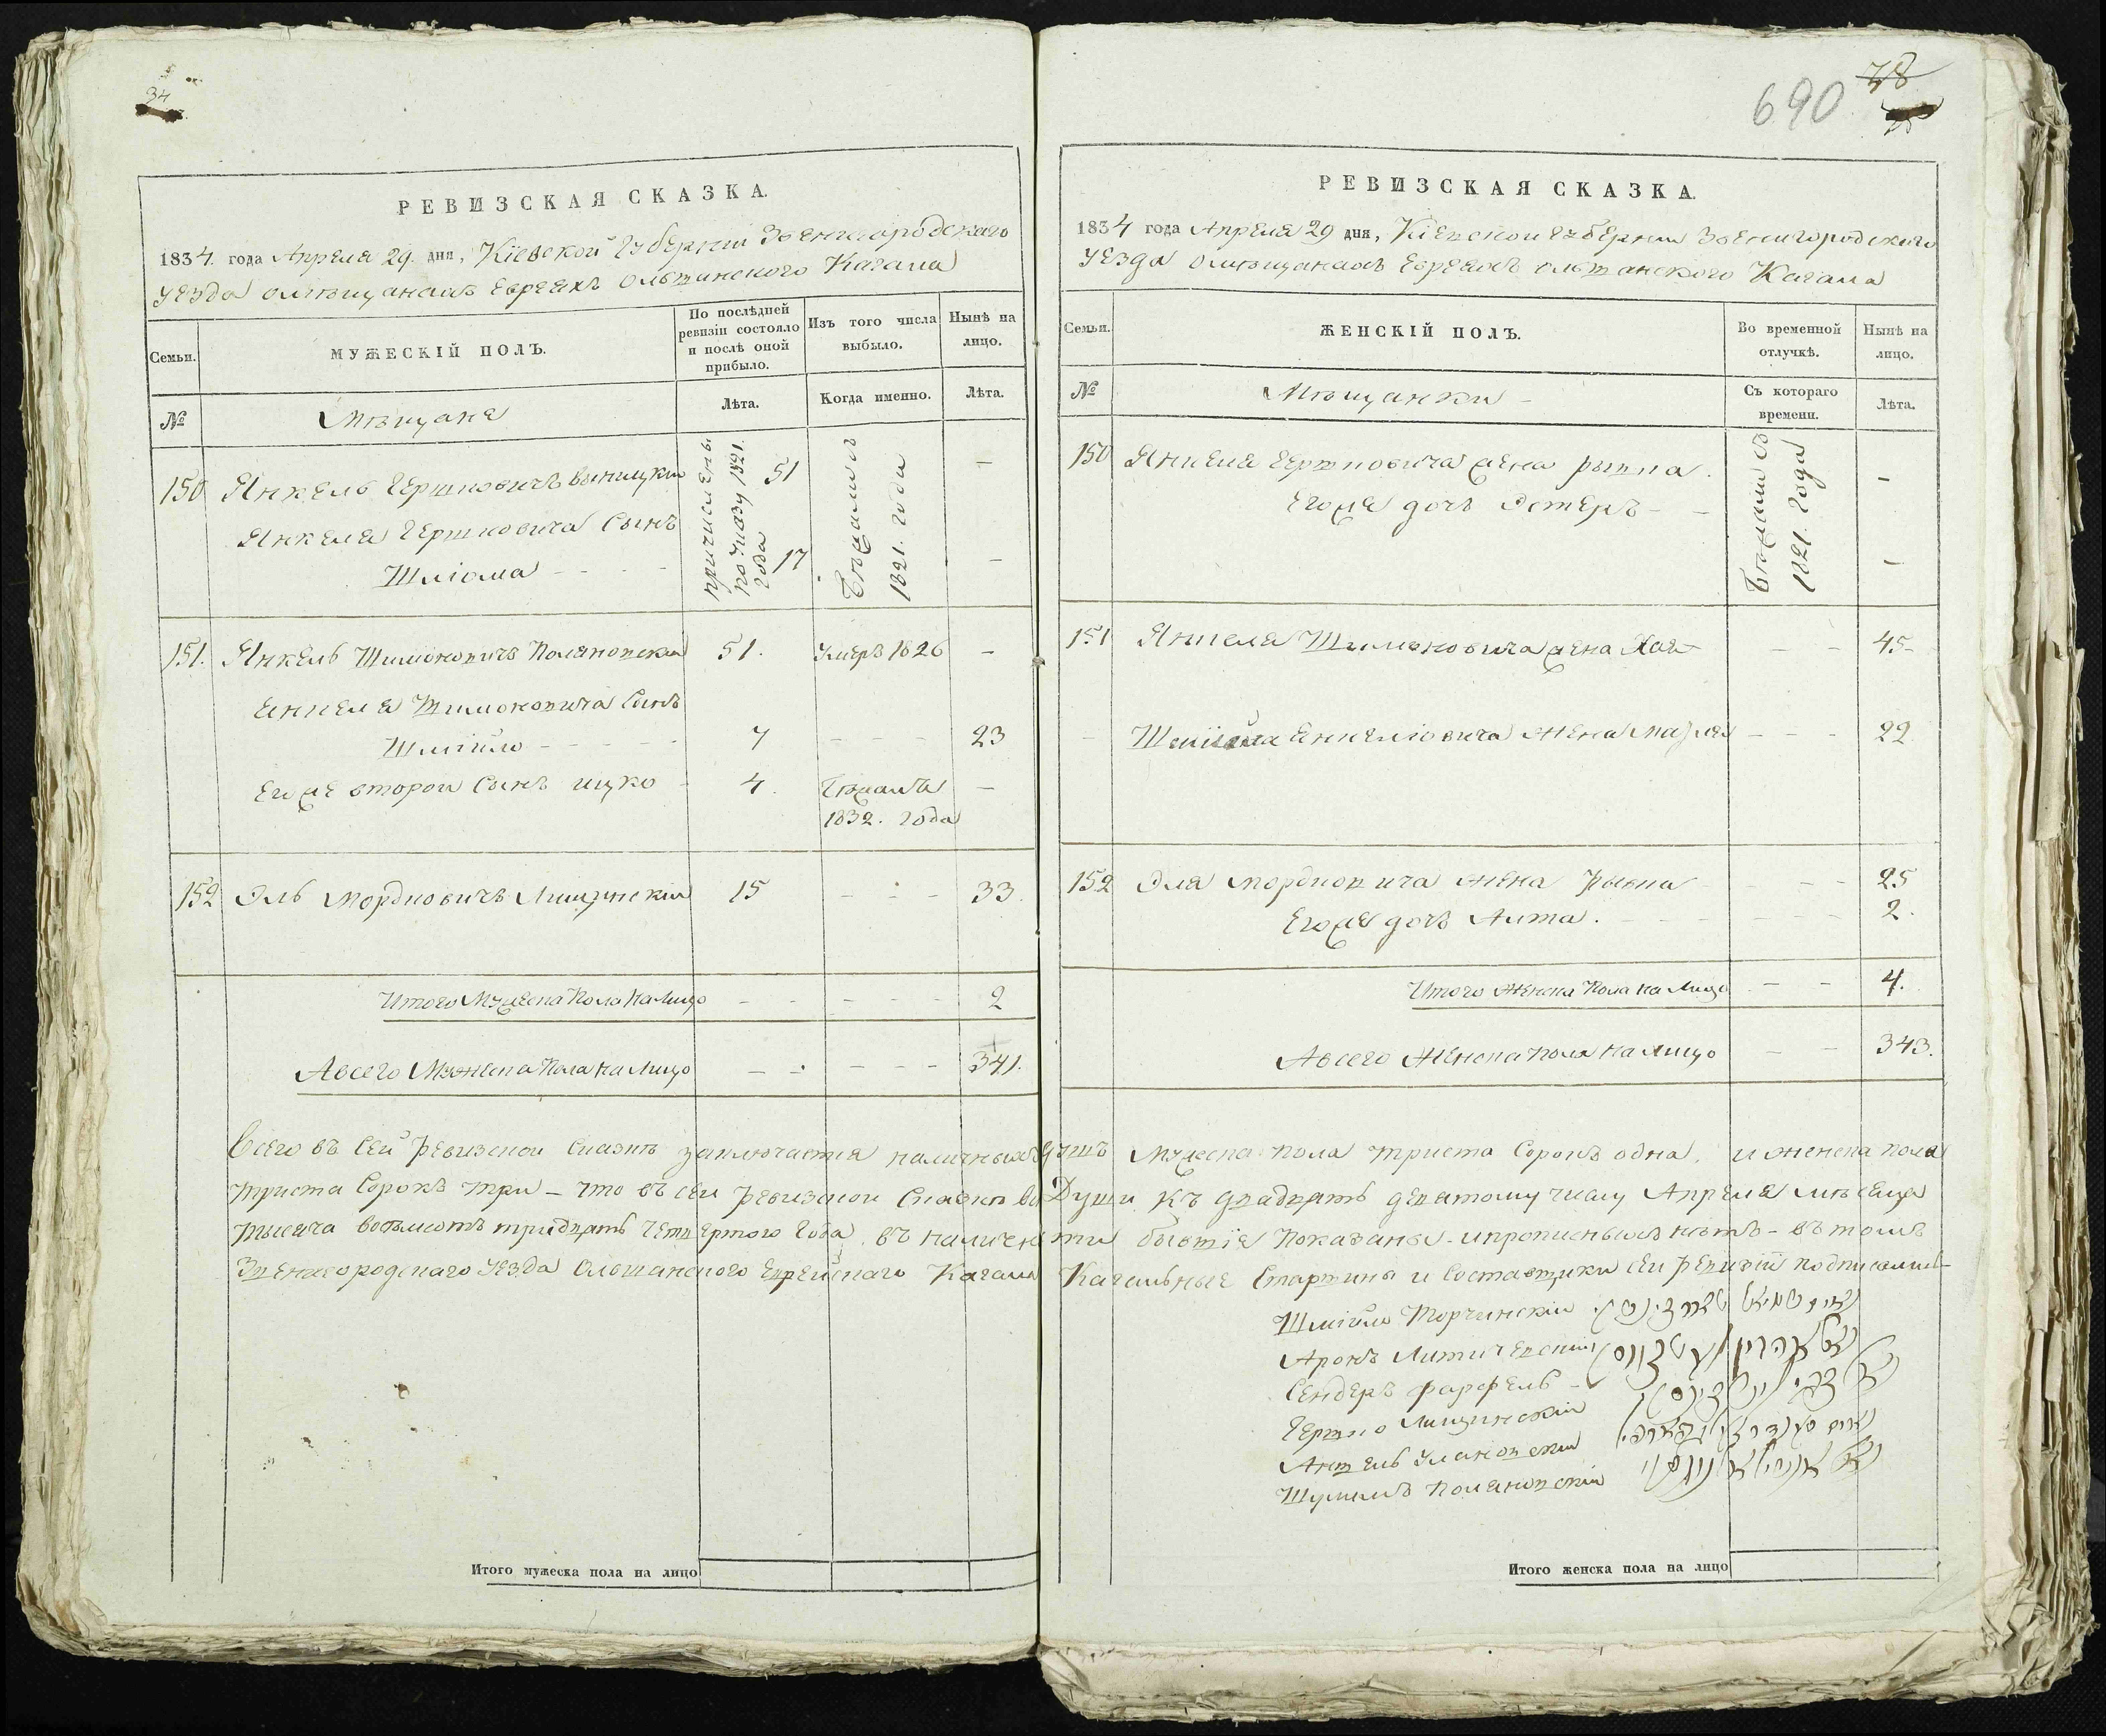 34
РЕВИЗСКАЯ СКАЗКА.
1834. года Апреля 29. дня, Кіевской Губерніи Звенигородскаго
уезда омѣщанахъ Евреяхъ Ольшанского Кагала
Семьи.
МУЖЕСКІЙ ПОЛЪ.
По послѣдней ревизіи состояло и послѣ оной прибыло.
Изъ того числа выбыло.
Нынѣ на лицо.
№
Мѣщане
Лѣта.
Когда именно.
Лѣта.
150 Янкель Гершковичъ Виницкій 51 —
Янкеля Гершковича Сынъ
Шліома - - - - 17 —
причислены по указу 1821. года
Бѣжали въ 1821. году
151. Янкель Шимоновичъ Поляновскій 51. Умеръ 1826 —
Янкеля Шимоновича Сынъ
Шміило - - - - - 7 - - - 23
Егоже второй Сынъ ицко - 4. Бѣжалъ —
1832. года
152 Эль Мордковичъ Лищинскій 15 - - - 33.
Итого Мужеска Пола на Лицо - - - - - 2
А всего Мужеска Пола на Лицо - - - - - 341.
690 78
РЕВИЗСКАЯ СКАЗКА.
1834 года Апреля 29 дня, Кіевской губерніи Звенигородского
уезда омѣщанахъ Евреяхъ ольшанского Кагала
Семьи.
ЖЕНСКІЙ ПОЛЪ.
Во временной отлучкѣ.
Нынѣ на лицо.
№
Мѣщанки -
Съ котораго времени.
Лѣта.
150 Янкеля Гершковича жена рыпла. -
Егоже дочь Эстеръ - - -
Бѣжали въ 1821. года
151 Янкеля Шимоновича жена Хая - - 45-
- Янкеліовича Жена - - - 22
152 Эля Мордковича жена Рывка - - - 25
Егоже дочь Алта. - - - 2.
Итого Женска Пола на Лицо - - 4.
А всего Женска пола на лицо - - 343.
Всего въ Сей Ревизской Сказкѣ заключается наличныхъ душъ Мужеска пола триста Сорокъ одна, и женска пола
триста Сорокъ три — что въ сей Ревизской Сказкѣ Души къ двадцать девятому числу Апреля мѣсяца
тысяча восьмсотъ тридцать четвертого Года въ наличности бывшія показаны - ипрописныхъ нѣтъ - въ томъ
Звенигородскаго уезда Ольшанского Еврейскаго Кагала Кагальные Старшины и Составщики сей ревизіи подписались-
Шміило Торчинскій
Аронъ
Сендеръ фарфель -
Гершко Лищинскій
Аншель Улановскій
Шулимъ Поляновскій
Итого мужеска пола на лицо
Итого женска пола на лицо